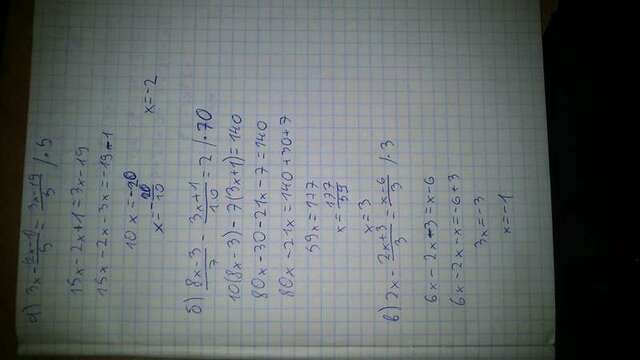 а) 3x - (2x-1)/5 = (3x-19)/5 / ·5
15x - 2x + 1 = 3x - 19
15x - 2x - 3x = -19 - 1
10x = -20
x = -20/10
x = -2
б) (8x-3)/7 - (3x+1)/10 = 2 / ·70
10(8x-3) - 7(3x+1) = 140
80x - 30 - 21x - 7 = 140
80x - 21x = 140 + 30 + 7
59x = 177
x = 177/59
x = 3
в) 2x - (2x+3)/3 = (x-6)/3 / ·3
6x - 2x - 3 = x - 6
6x - 2x - x = -6 + 3
3x = -3
x = -1